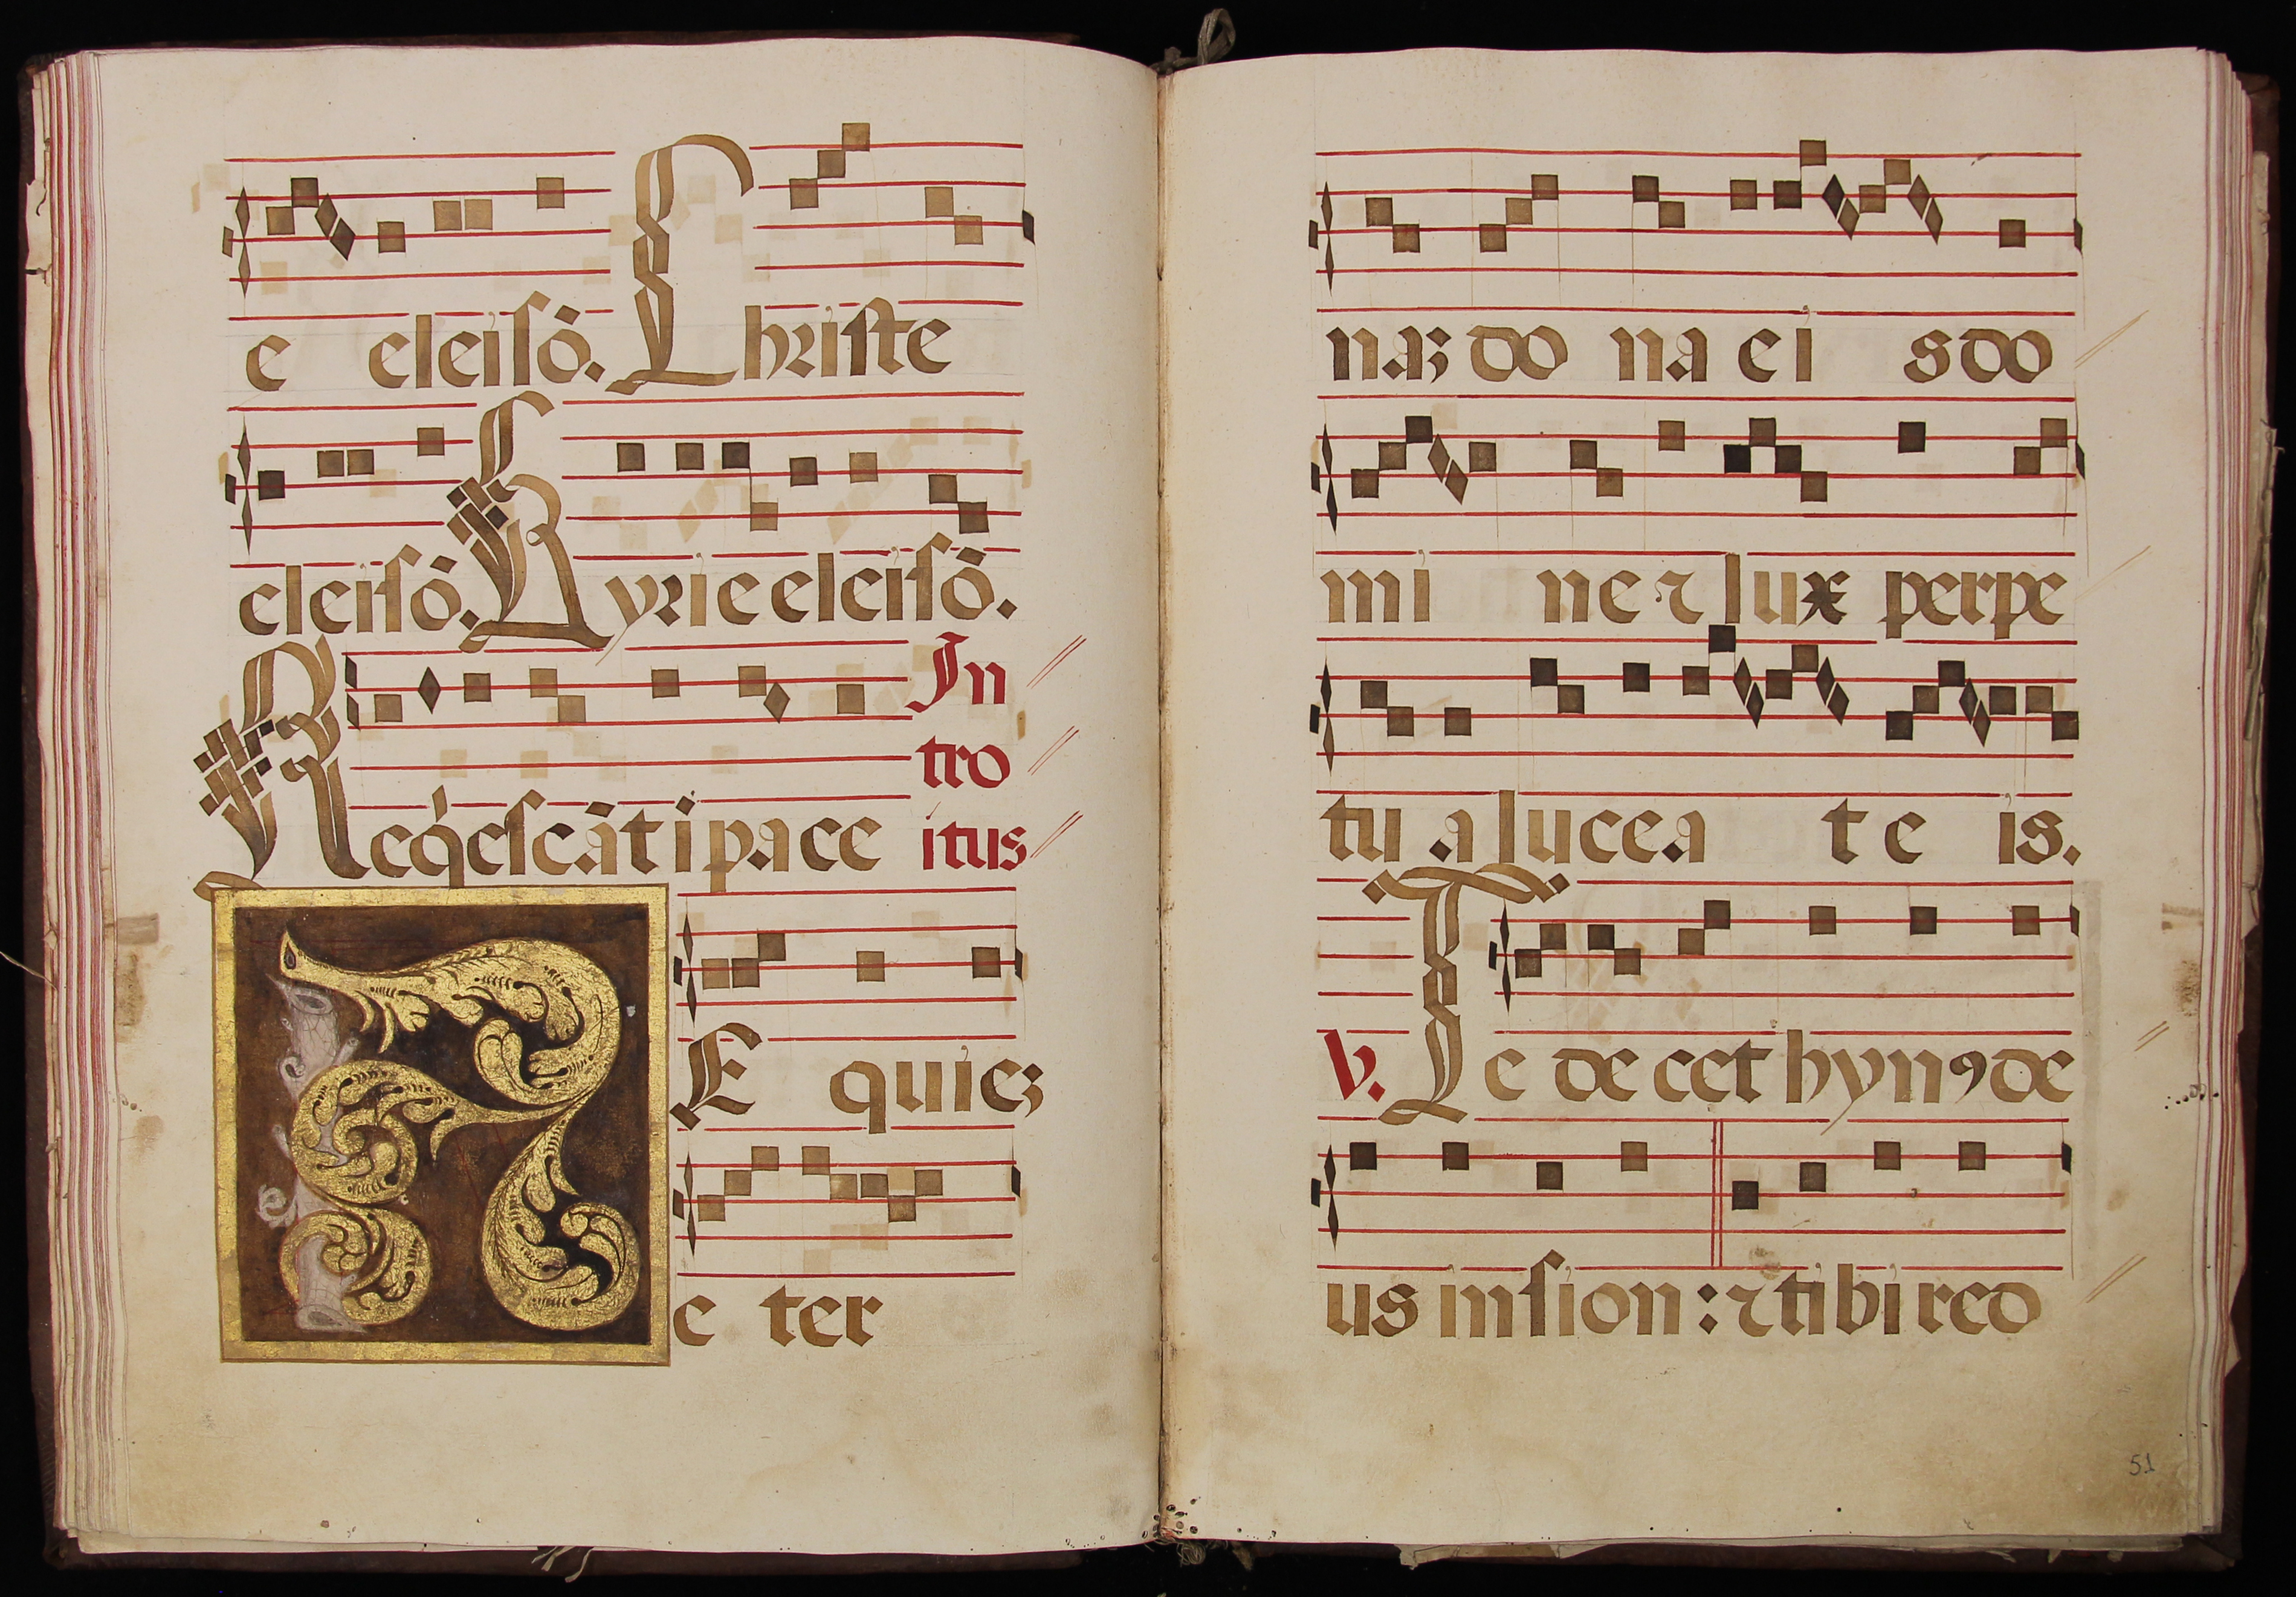 e eleisõ. Christe
eleisõ. Kyrie eleisõ.
In
tro
Reqͥescãt i pace itus
REquieʒ
e ter
naʒ do na ei s do
mi ne ⁊ lux perpe
tu a lucea t e is.
V. Te decet hynꝰ de
us in sion : ⁊ tibi red
51